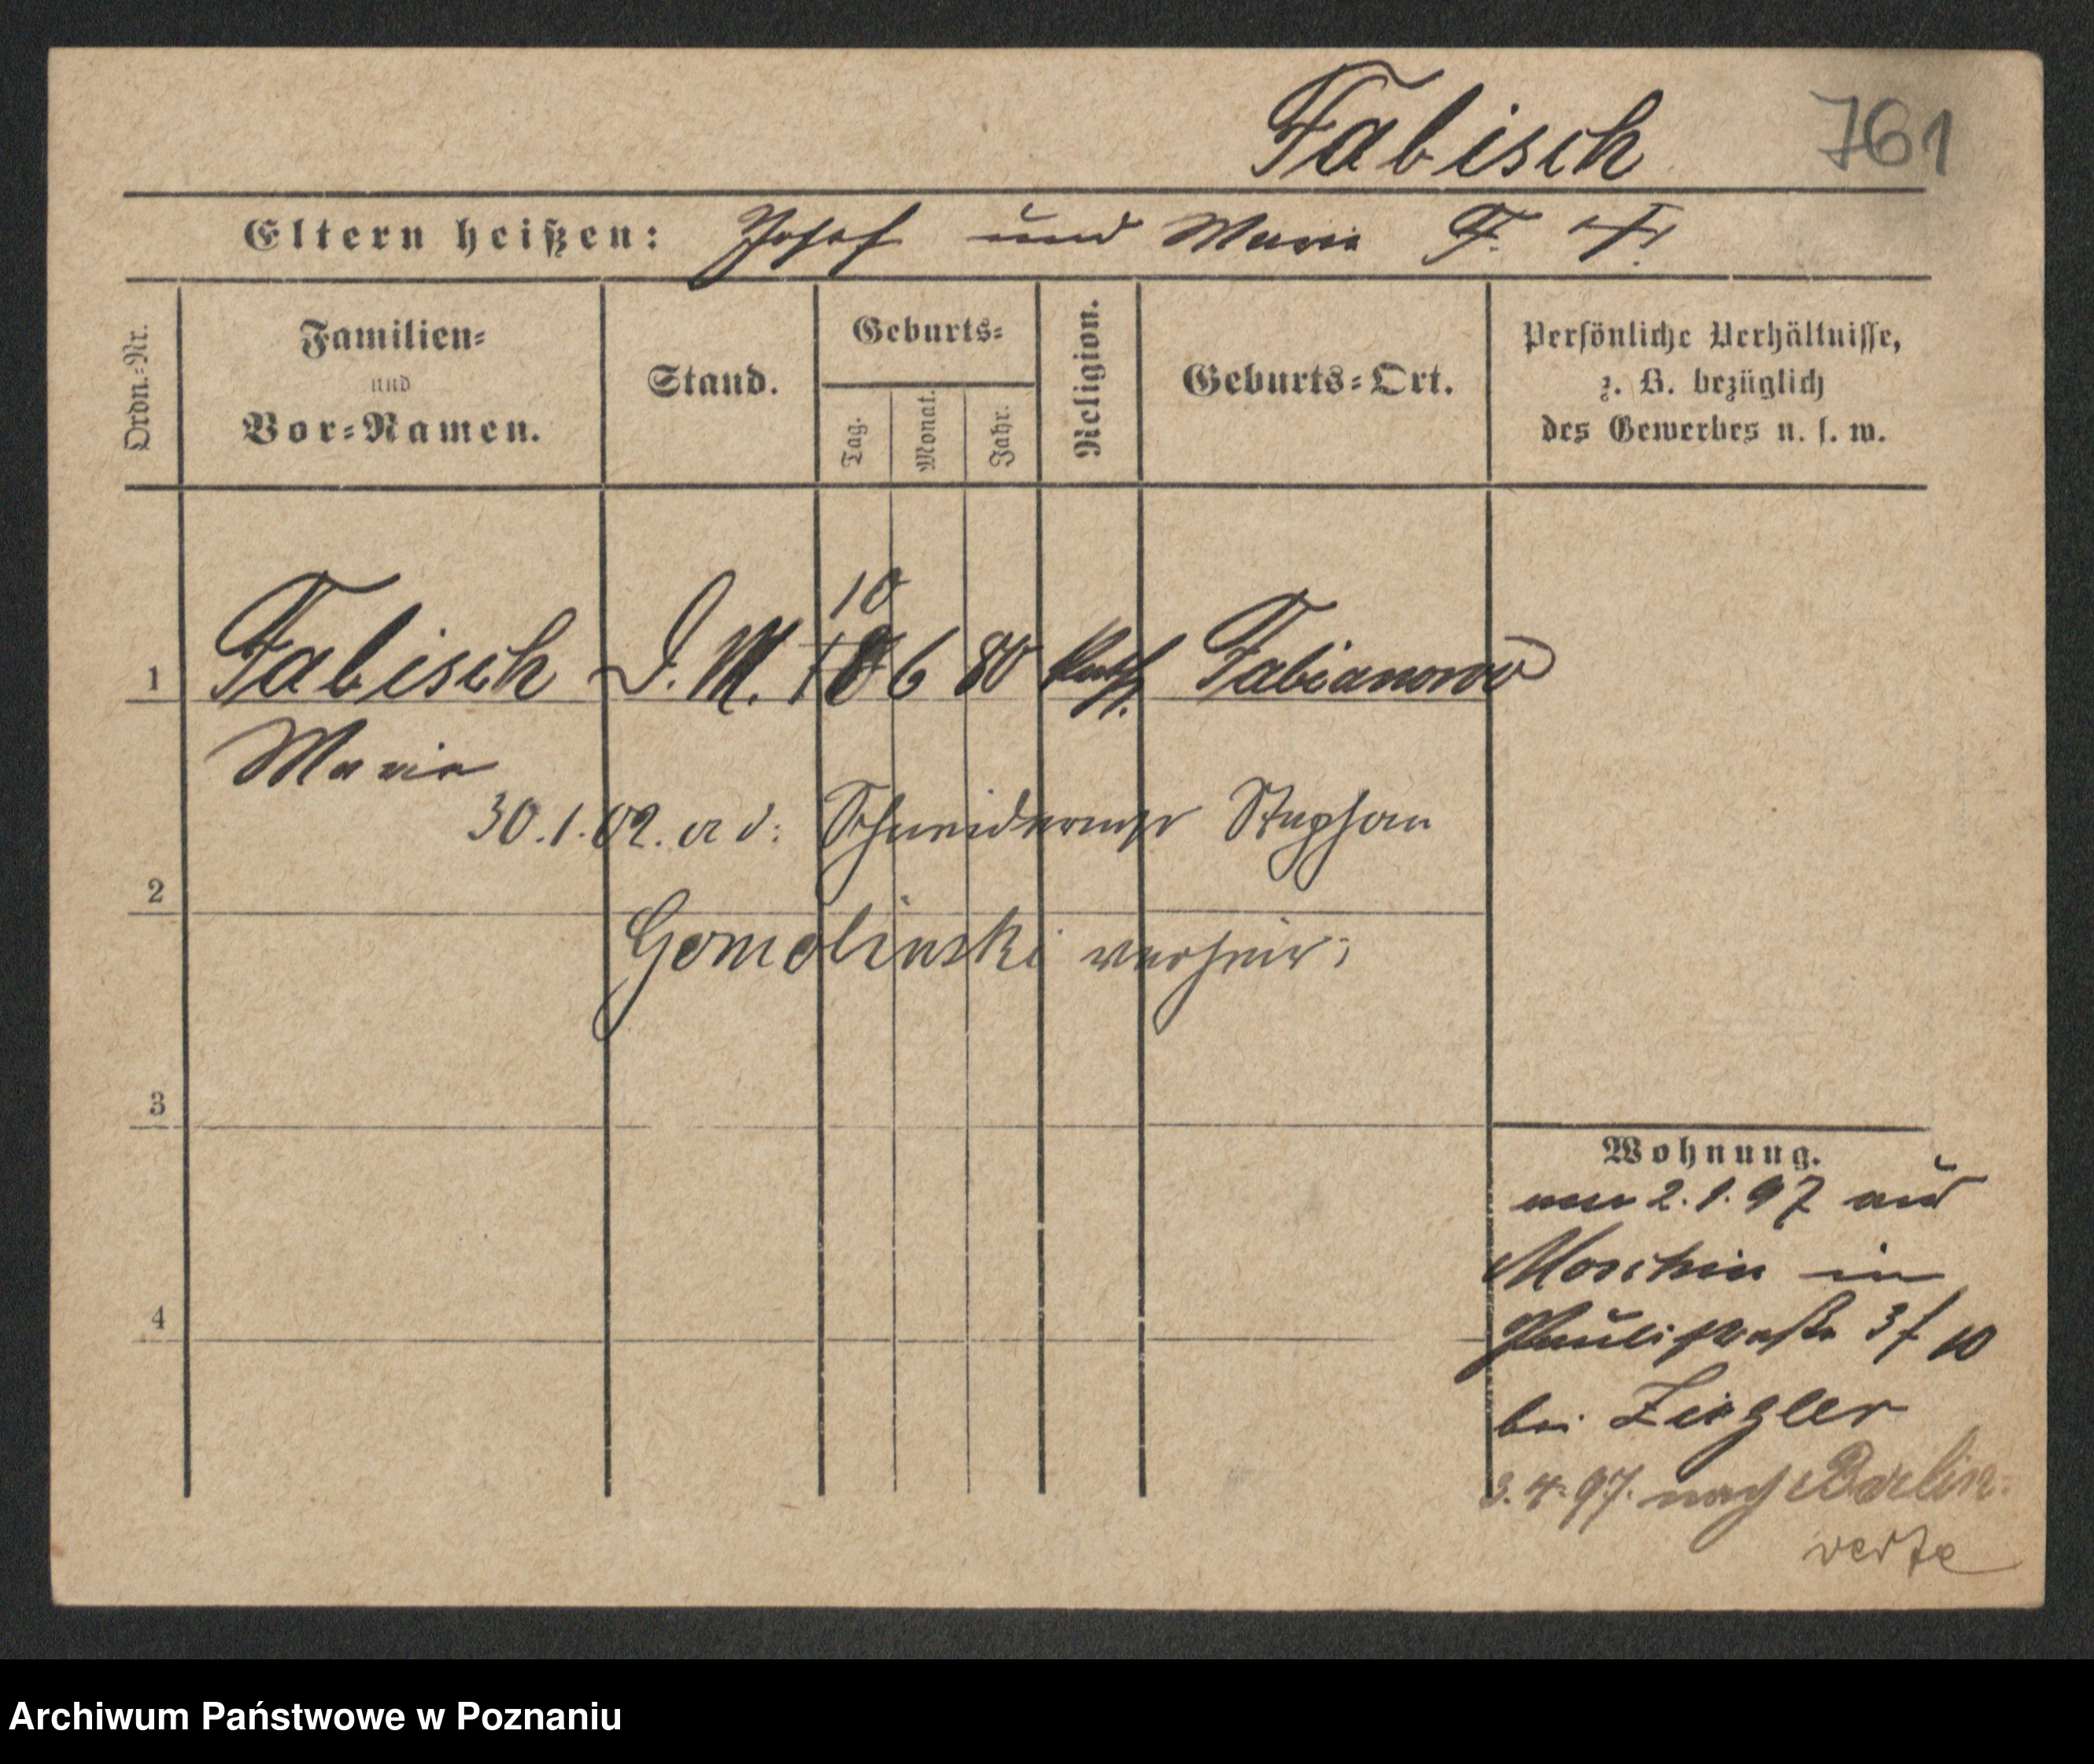 Fabisch 761
Eltern heißen: Josef und Maria F. †.
Ordn.-Nr.
Familien- und Vor-Namen.
Stand.
Geburts-
Tag. Monat. Jahr.
Religion.
Geburts-Ort.
Persönliche Verhältnisse,
z. B. bezüglich
des Gewerbes u. s. w.
10
1 Fabisch D. M. 6 80 kath. Fabianowo
Maria
30.1.02. a d: Schneidermstr Stephan
2
Gomolinski verheir:
3
4
Wohnung.
2.1.97 aus
Moschin in
Paulistraße 3 f 10
bei Ziegler
3.4.97. nach Berlin.
verte
Archiwum Państwowe w Poznaniu